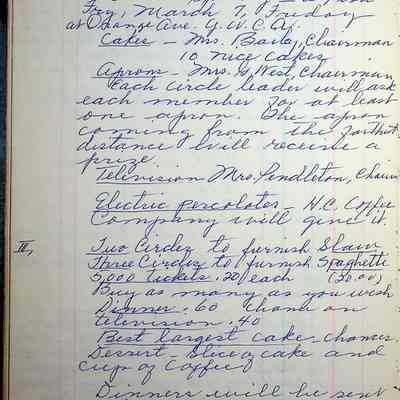 Fry, March 7, Friday
at Orange Ave. Y.W.C.A.
Cakes - Mrs. Baity, Chairman
10 nice cakes
Aprons - Mrs. G. West, Chairman
Each circle leader will ask
each member for at least
one apron. The apron
coming from the farthist
distance will receive a
prize.
Television Mrs. Pendleton, Chairm
Electric percolater - H.C. Coffee
Company will give it.
III, Two Circles to furnish Slaw
Three Circles to furnish Spaghetti
5,000 tickets .20 each (50.00)
Buy as many as you wish
Dinner .60 Chance on
television .40
Best largest cake - chances.
Dessert - Slice of cake and
cup of coffee
Dinners will be sent